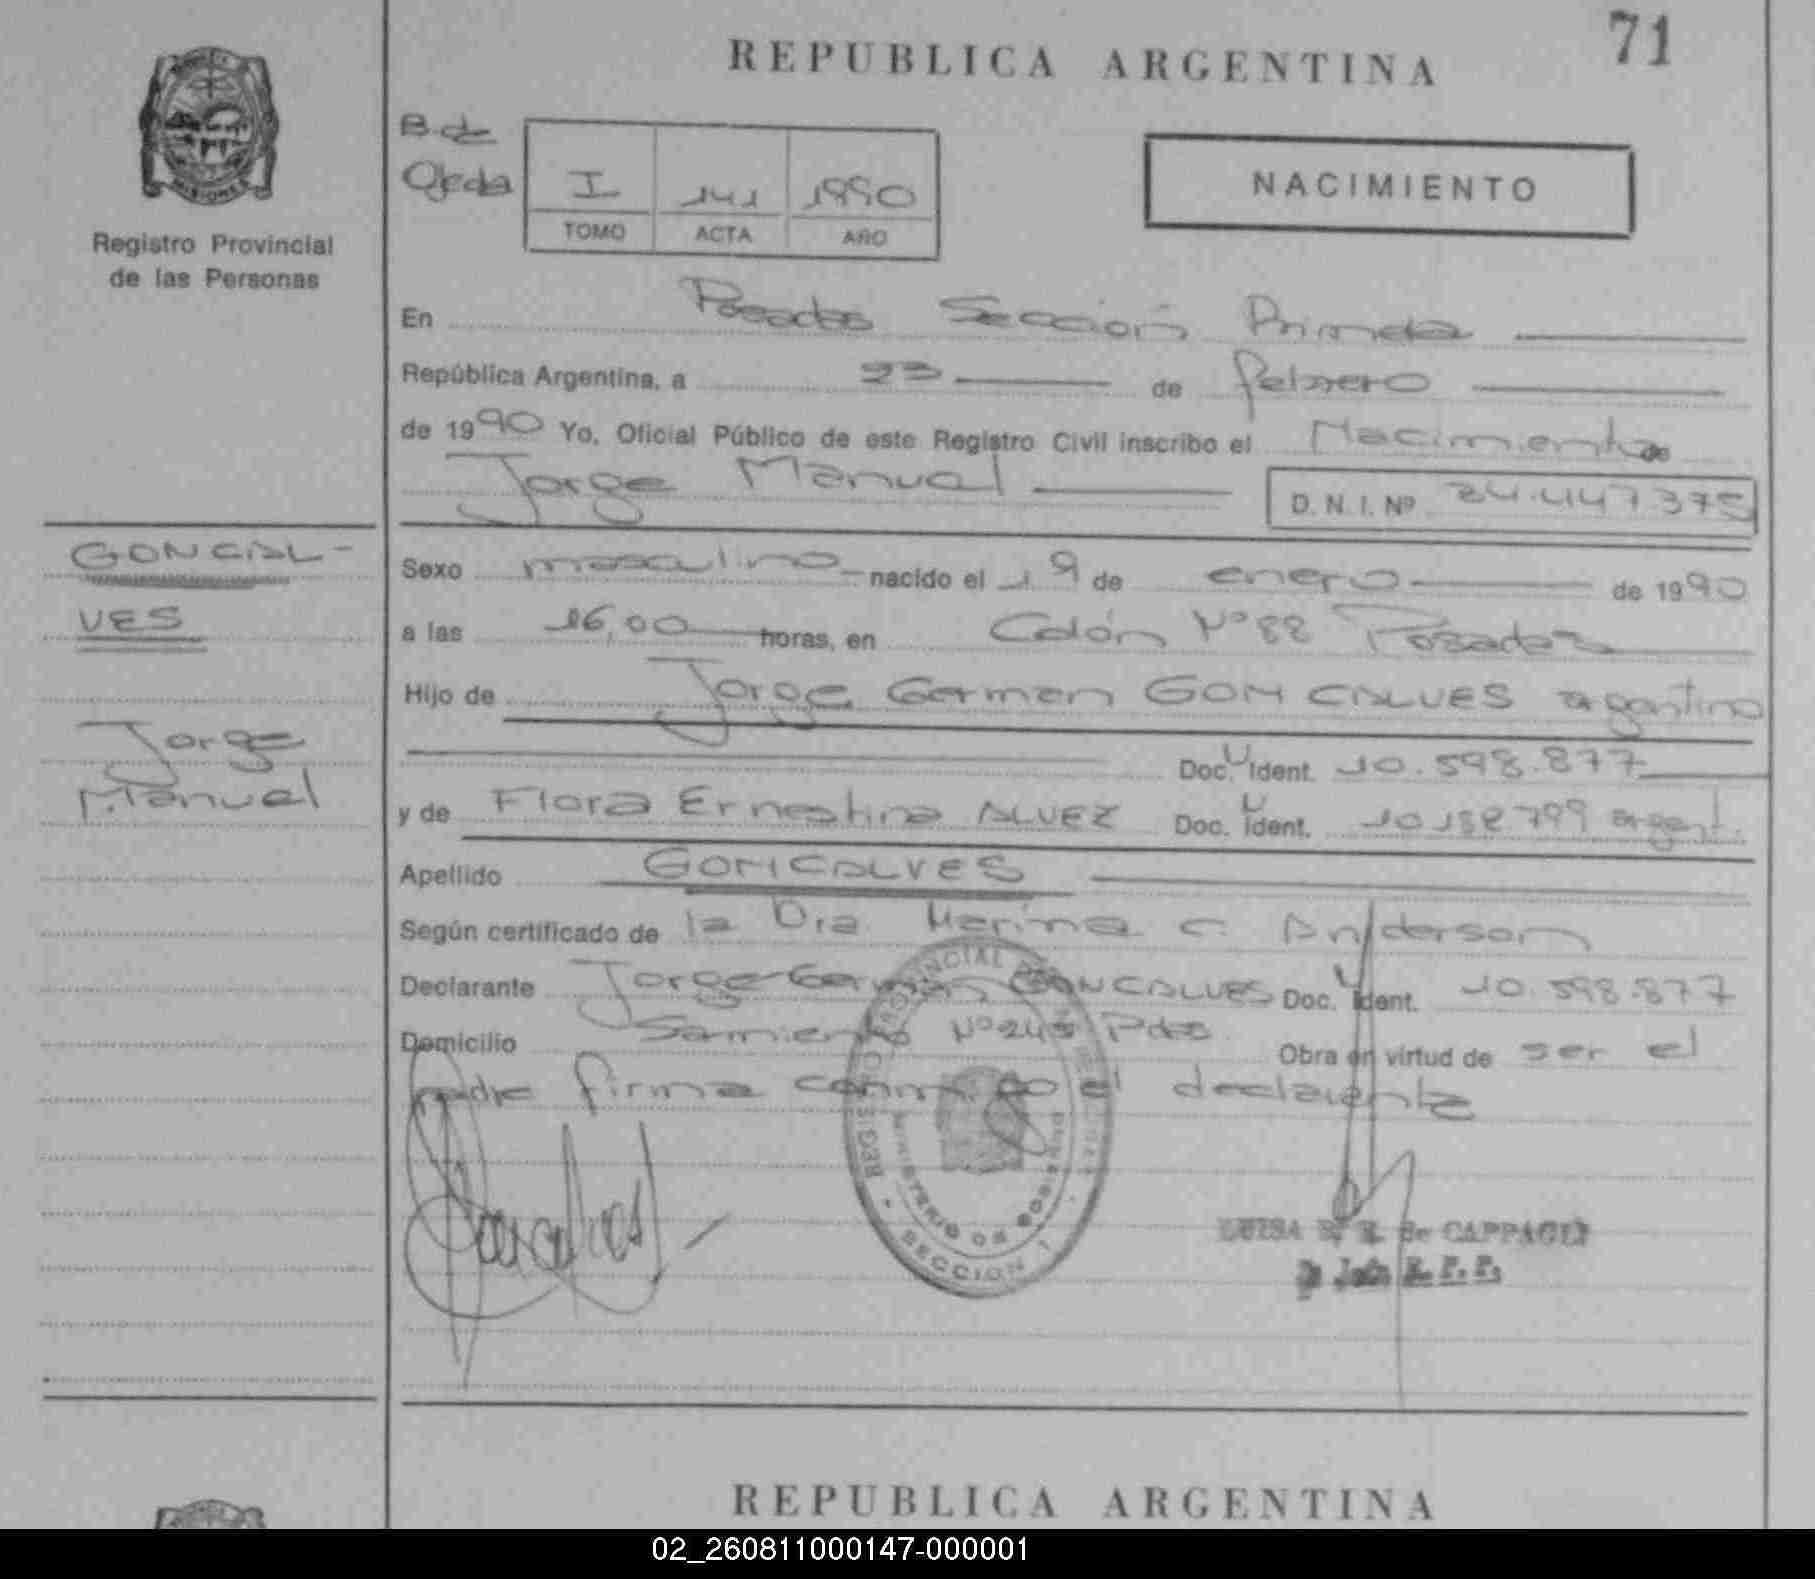 71
REPUBLICA ARGENTINA
B. de
Ojeda
I 141 1990
TOMO ACTA AÑO
NACIMIENTO
MISIONES
Registro Provincial
de las Personas
En Posadas Sección Primera
República Argentina, a 23 de febrero
de 1990 Yo, Oficial Público de este Registro Civil inscribo el Nacimiento de
Jorge Manuel D. N. I. Nº 34.447.375
GONCAL-
VES
Jorge
Manuel
Sexo masculino nacido el 19 de enero de 1990
a las 16,00 horas, en Colón Nº 88 Posadas
Hijo de Jorge German GONCALVES argentino
Doc. Ident. 10.598.877
y de Flora Ernestina ALVEZ Doc. Ident. 10.158.799 argent.
Apellido GONCALVES
Según certificado de la Dra. Marina C. Anderson
Declarante Jorge German GONCALVES Doc. Ident. 10.598.877
Domicilio Sarmiento Nº 245 Pdas. Obra en virtud de ser el
padre firma conmigo el declarante
REGISTRO PROVINCIAL DE LAS PERSONAS
MINISTERIO DE GOBIERNO
SECCION 1
Goncalves
LUISA de CAPPAGLI
R. P. P.
REPUBLICA ARGENTINA
02_260811000147-000001